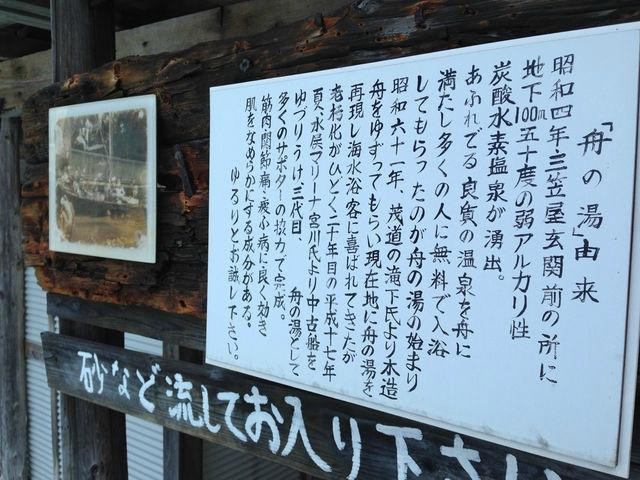 「舟の湯」由来
昭和四年三笠屋玄関前の所に
地下100m五十度の弱アルカリ性
炭酸水素塩泉が湧出。
あふれでる良質の温泉を舟に
満たし多くの人に無料で入浴
してもらったのが舟の湯の始まり
昭和六十一年、茂道の滝下氏より木造
舟をゆずってもらい現在地に舟の湯を
再現し海水浴客に喜ばれてきたが
老朽化がひどく二十年目の平成十七年
夏水俣マリーナ宮川氏より中古船を
ゆづりうけ三代目、舟の湯として
多くのサポーターの協力で完成。
筋肉関節痛、疲ふ病に良く効き
肌をなめらかにする成分がある。
ゆるりとお試し下さい。
砂など流してお入り下さい